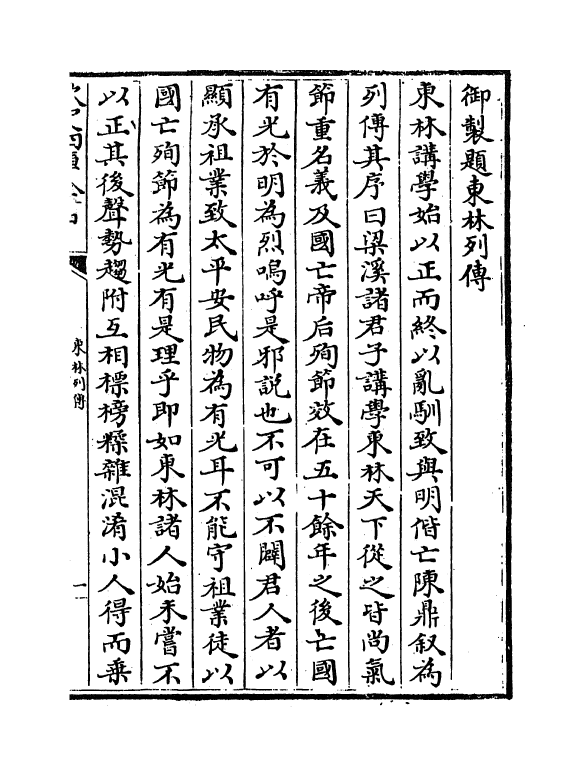 御製題東林列傳
東林講學始以正而終以亂馴致與明偕亡陳鼎叙為
列傳其序曰梁溪諸君子講學東林天下從之皆尚氣
節重名義及國亡帝后殉節效在五十餘年之後亡國
有光於明為烈嗚呼是邪說也不可以不闢君人者以
顯承祖業致太平安民物為有光耳不能守祖業徒以
國亡殉節為有光有是理乎即如東林諸人始未嘗不
以正其後聲勢趨附互相標榜糅雜混淆小人得而乗
東林列傳
一